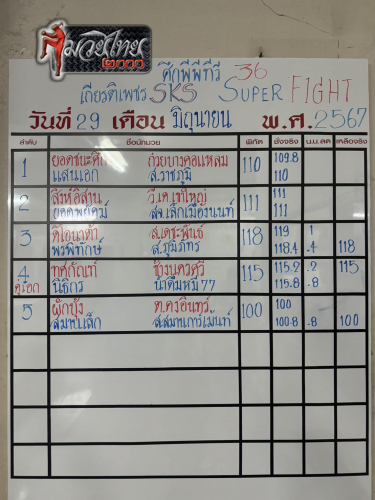 มวยไทย
๒๐๐๐
ศึกพีพีทีวี 36
เกียรติเพชร SKS SUPER FIGHT
วันที่ 29 เดือน มิถุนายน พ.ศ. 2567
ลำดับ ชื่อนักมวย พิกัด ชั่งจริง น.น.ลด เหลือจริง
1 ยอดชนะศึก ก๋วยบางคอแหลม 110 109.8
แสนเอก ส.ราชภูมิ 110
2 สิงห์อีสาน วี.เค.เขาใหญ่ 111 111
ยอดพยัคฆ์ สจ.เล็กเมืองนนท์ 111
3 ส.เดชะพันธ์ 118 119 1
พรพิทักษ์ ส.ภูมิภัทร 118.4 .4 118
4 ทศกัณฑ์ ช้างนครศรี 115 115.2 .2 115
คู่เอก นิธิกร น้ำดื่มหมี77 115.8 .8
5 ผักบุ้ง ต.คงอินทร์ 100 100
สมานเล็ก ส.สมานการ์เม้นท์ 100.8 .8 100